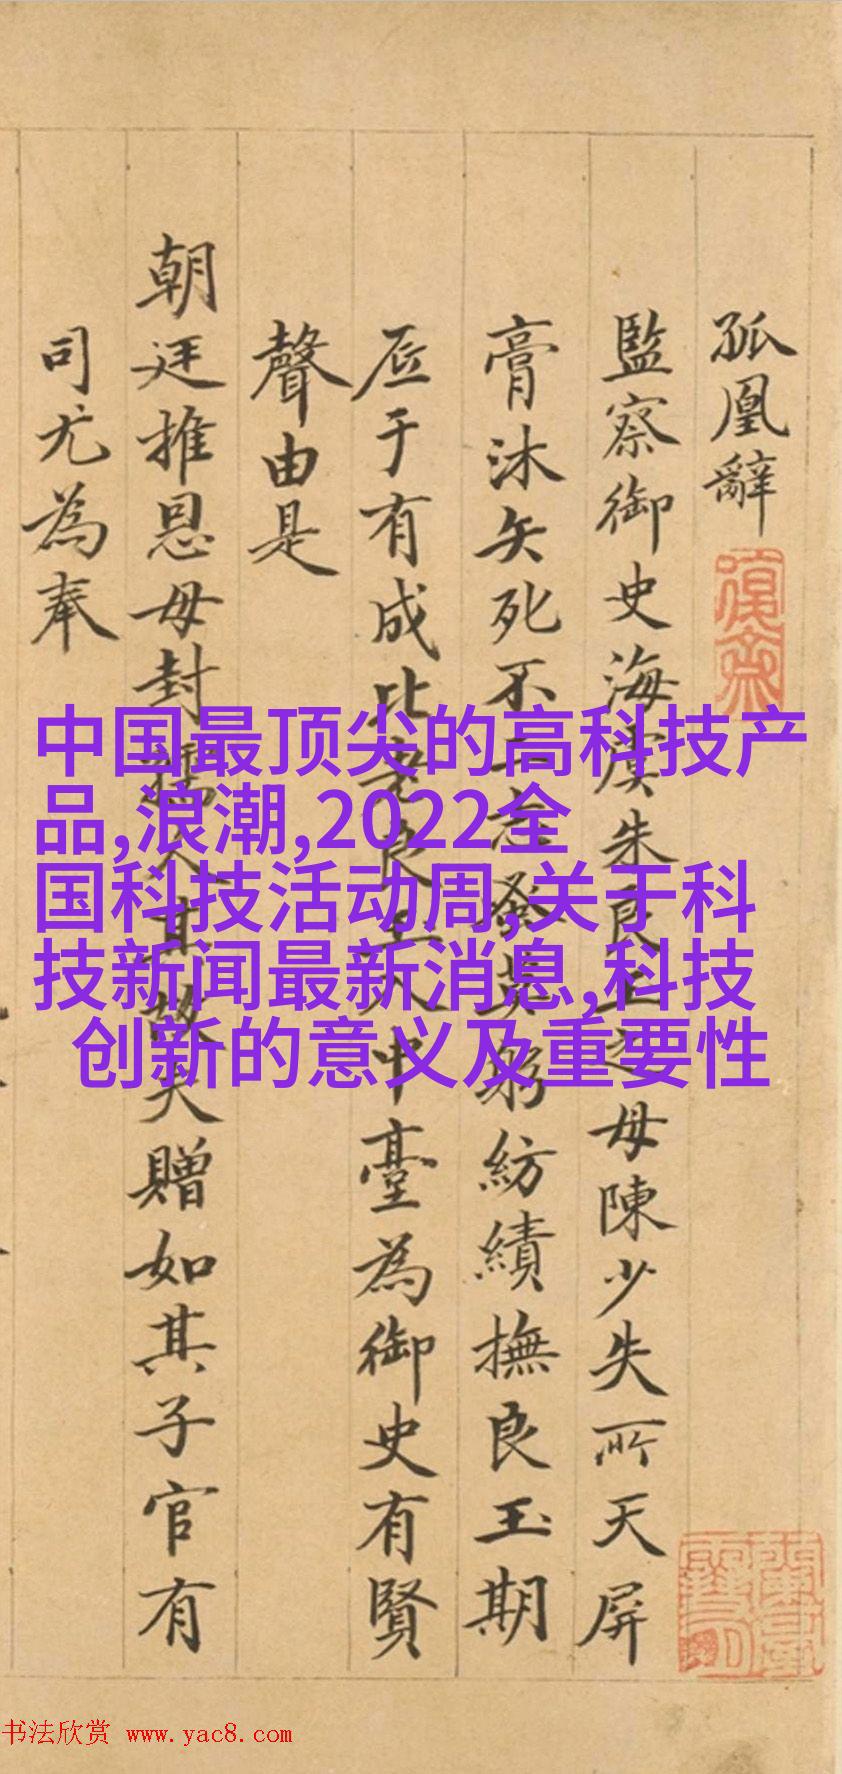 孤凰辭
監察御史海虞朱良玉之母陳少失所天屏
膏沐矢死不二志躬紡績撫良玉期
厎于有成比良玉入中臺為御史有賢
聲由是
朝廷推恩母封孺人其故夫贈如其子官有
司尤為奉
中国最顶尖的高科技产
品,浪潮,2022全
国科技活动周,关于科
技新闻最新消息,科技
创新的意义及重要性
书法欣赏 www.yac8.com